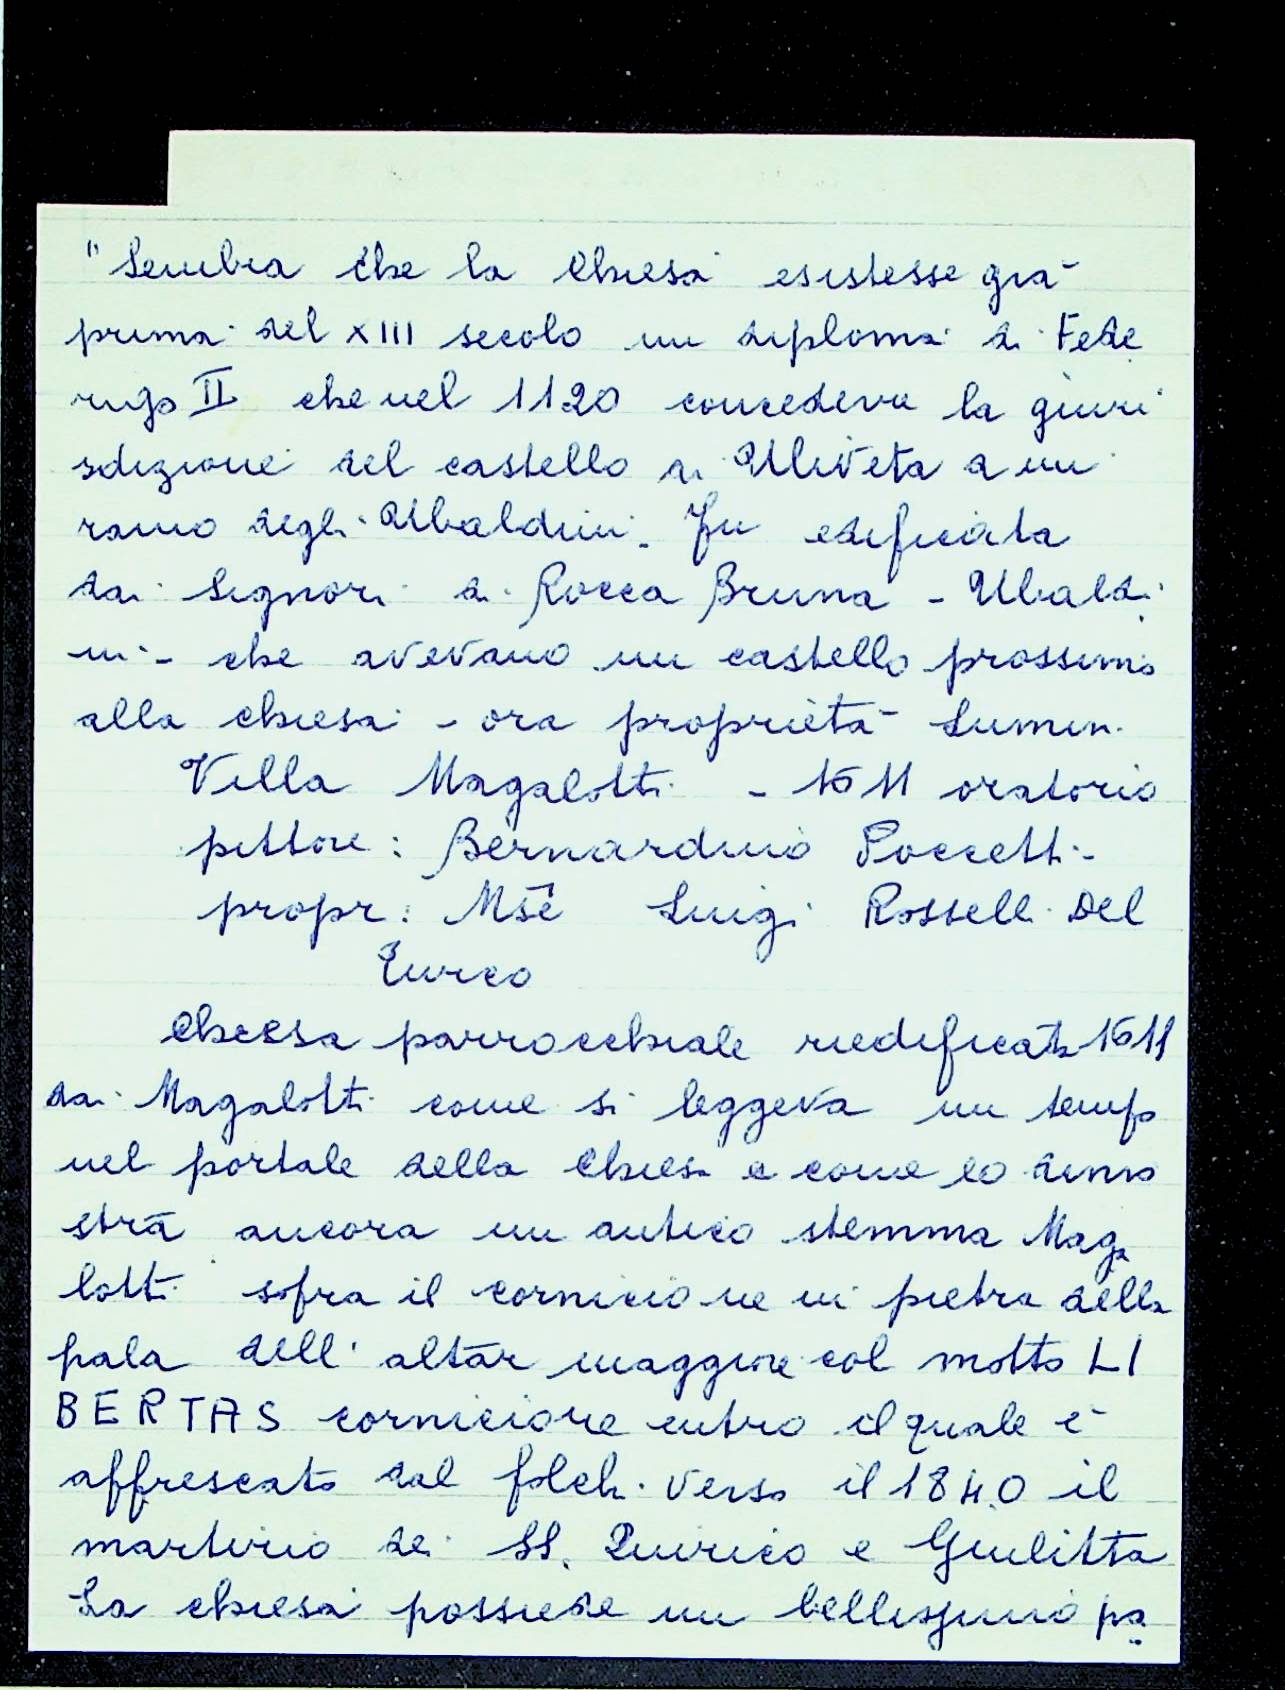 "Sembra che la Chiesa esistesse già
prima del XIII secolo un diploma di Fede
rigo II che nel 1120 concedeva la giuri
sdizione del castello di Uliveta a un
ramo degli Ubaldini. Fu edificata
dai Signori di Rocca Bruna - Ubaldi
ni - che avevano un castello prossimo
alla chiesa - ora proprietà Lumin.
Villa Magalotti - 1611 oratorio
pittore: Bernardino Poccetti -
propr: Mse Luigi Rosselli Del
Turco
Chiesa parrocchiale riedificata 1611
dai Magalotti come si leggeva un tempo
nel portale della Chiesa e come lo dimo
stra ancora un antico stemma Maga
lotti sopra il cornicione in pietra della
pala dell'altar maggiore col motto LI
BERTAS cornicione entro il quale è
affrescato dal folchi verso il 1840 il
martirio dei SS. Quirico e Giulitta
La chiesa possiede un bellissimo pa